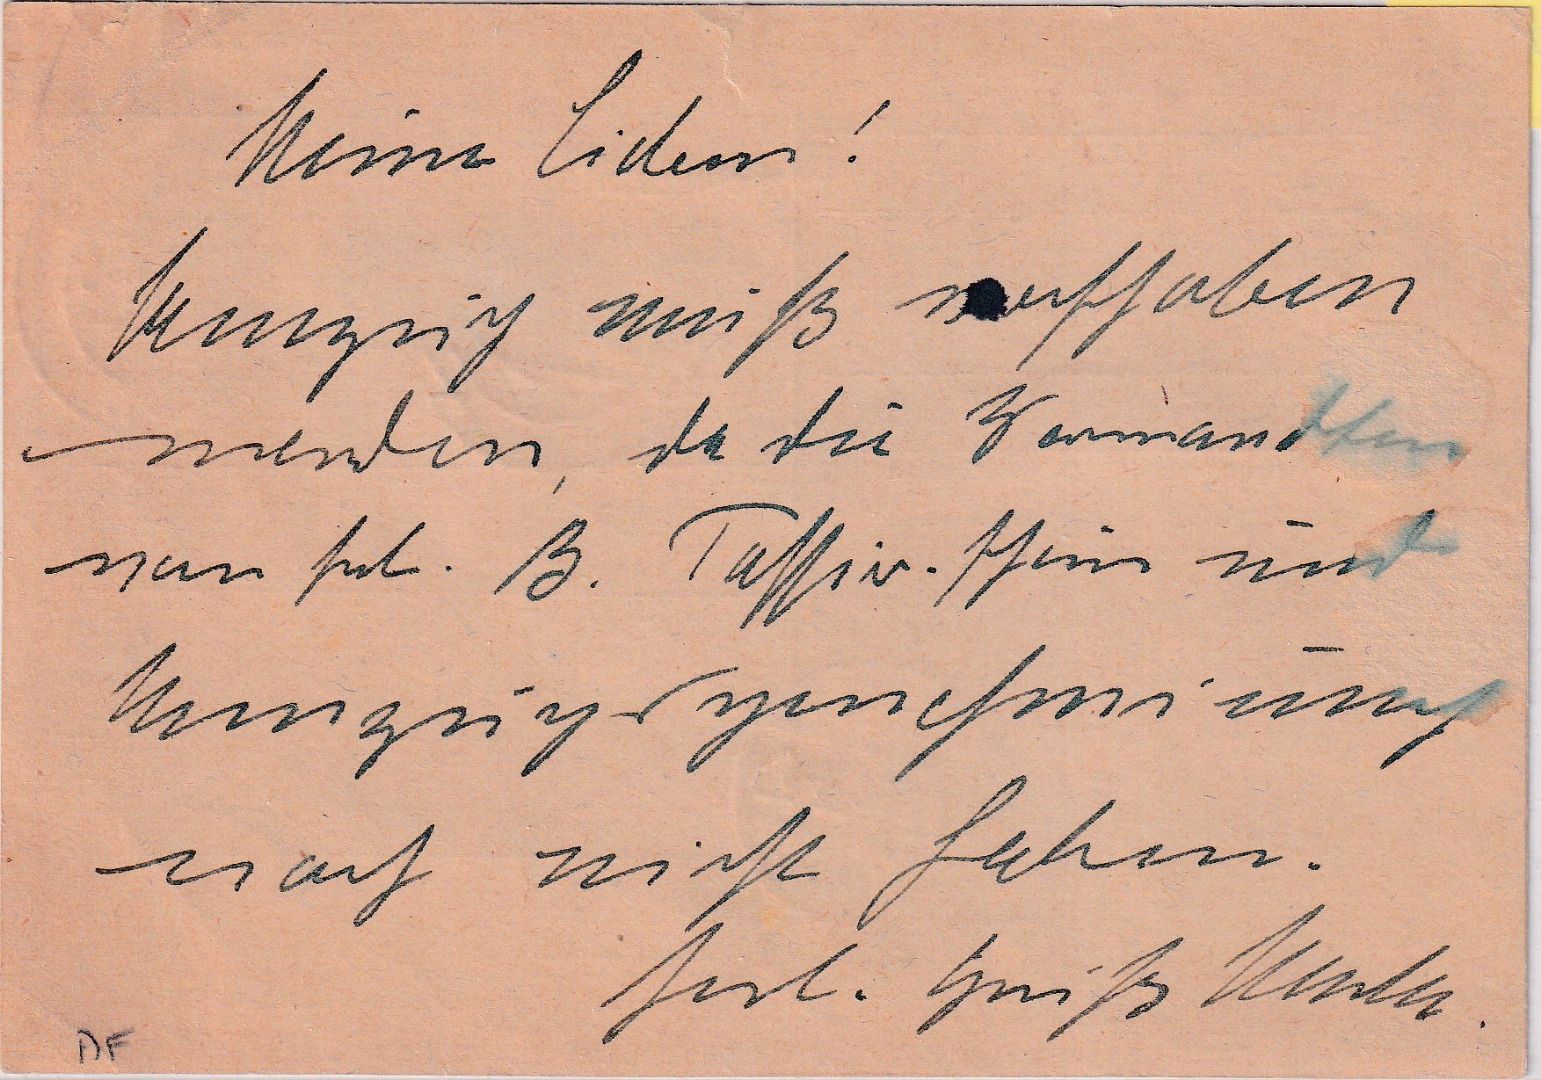 Meine Lieben!
Umzug muß verschoben
werden, da die Verwandten
von Frl. B. Passier-schein und
Umzugsgenehmigung
noch nicht haben.
Herzl. Gruß Mutter.